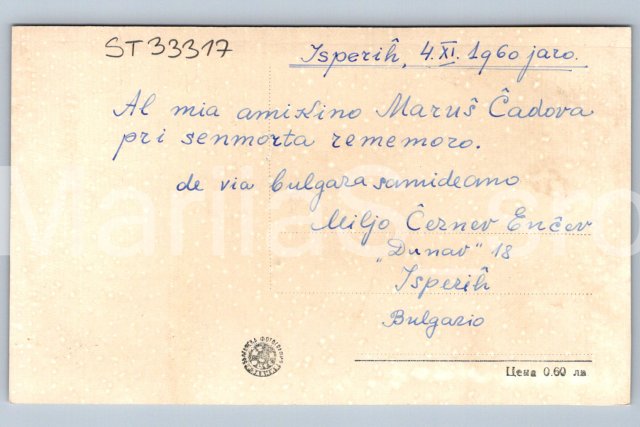 ST33317
Isperiĥ, 4.XI.1960 jaro.
Al mia amikino Maruŝ Ĉadova
pri senmorta rememoro.
de via bulgara samideano
Miljo Ĉernev Enĉev
„Dunav" 18
Isperiĥ
Bulgario
Цена 0.60 лв